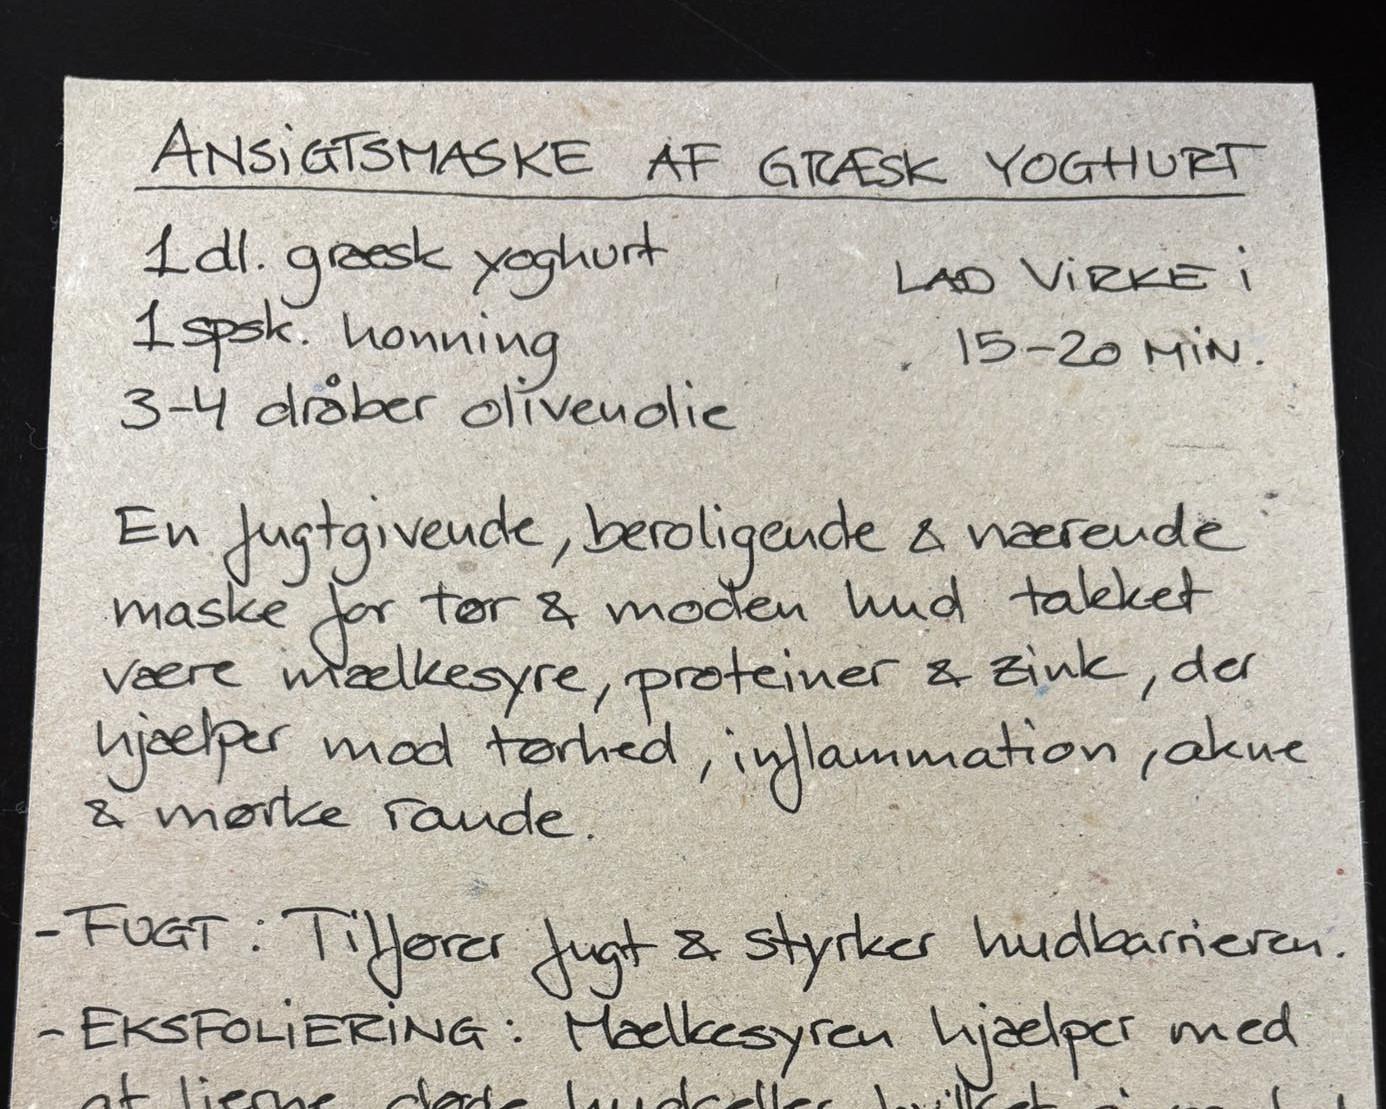 ANSIGTSMASKE AF GRÆSK YOGHURT
1 dl. græsk yoghurt
1 spsk. honning
3-4 dråber olivenolie
LAD VIRKE i
15-20 MIN.
En fugtgivende, beroligende & nærende
maske for tør & moden hud takket
være mælkesyre, proteiner & zink, der
hjælper mod tørhed, inflammation, akne
& mørke rande.
- FUGT: Tilfører fugt & styrker hudbarrieren.
- EKSFOLIERING: Mælkesyren hjælper med
at fjerne døde hudceller hvilket